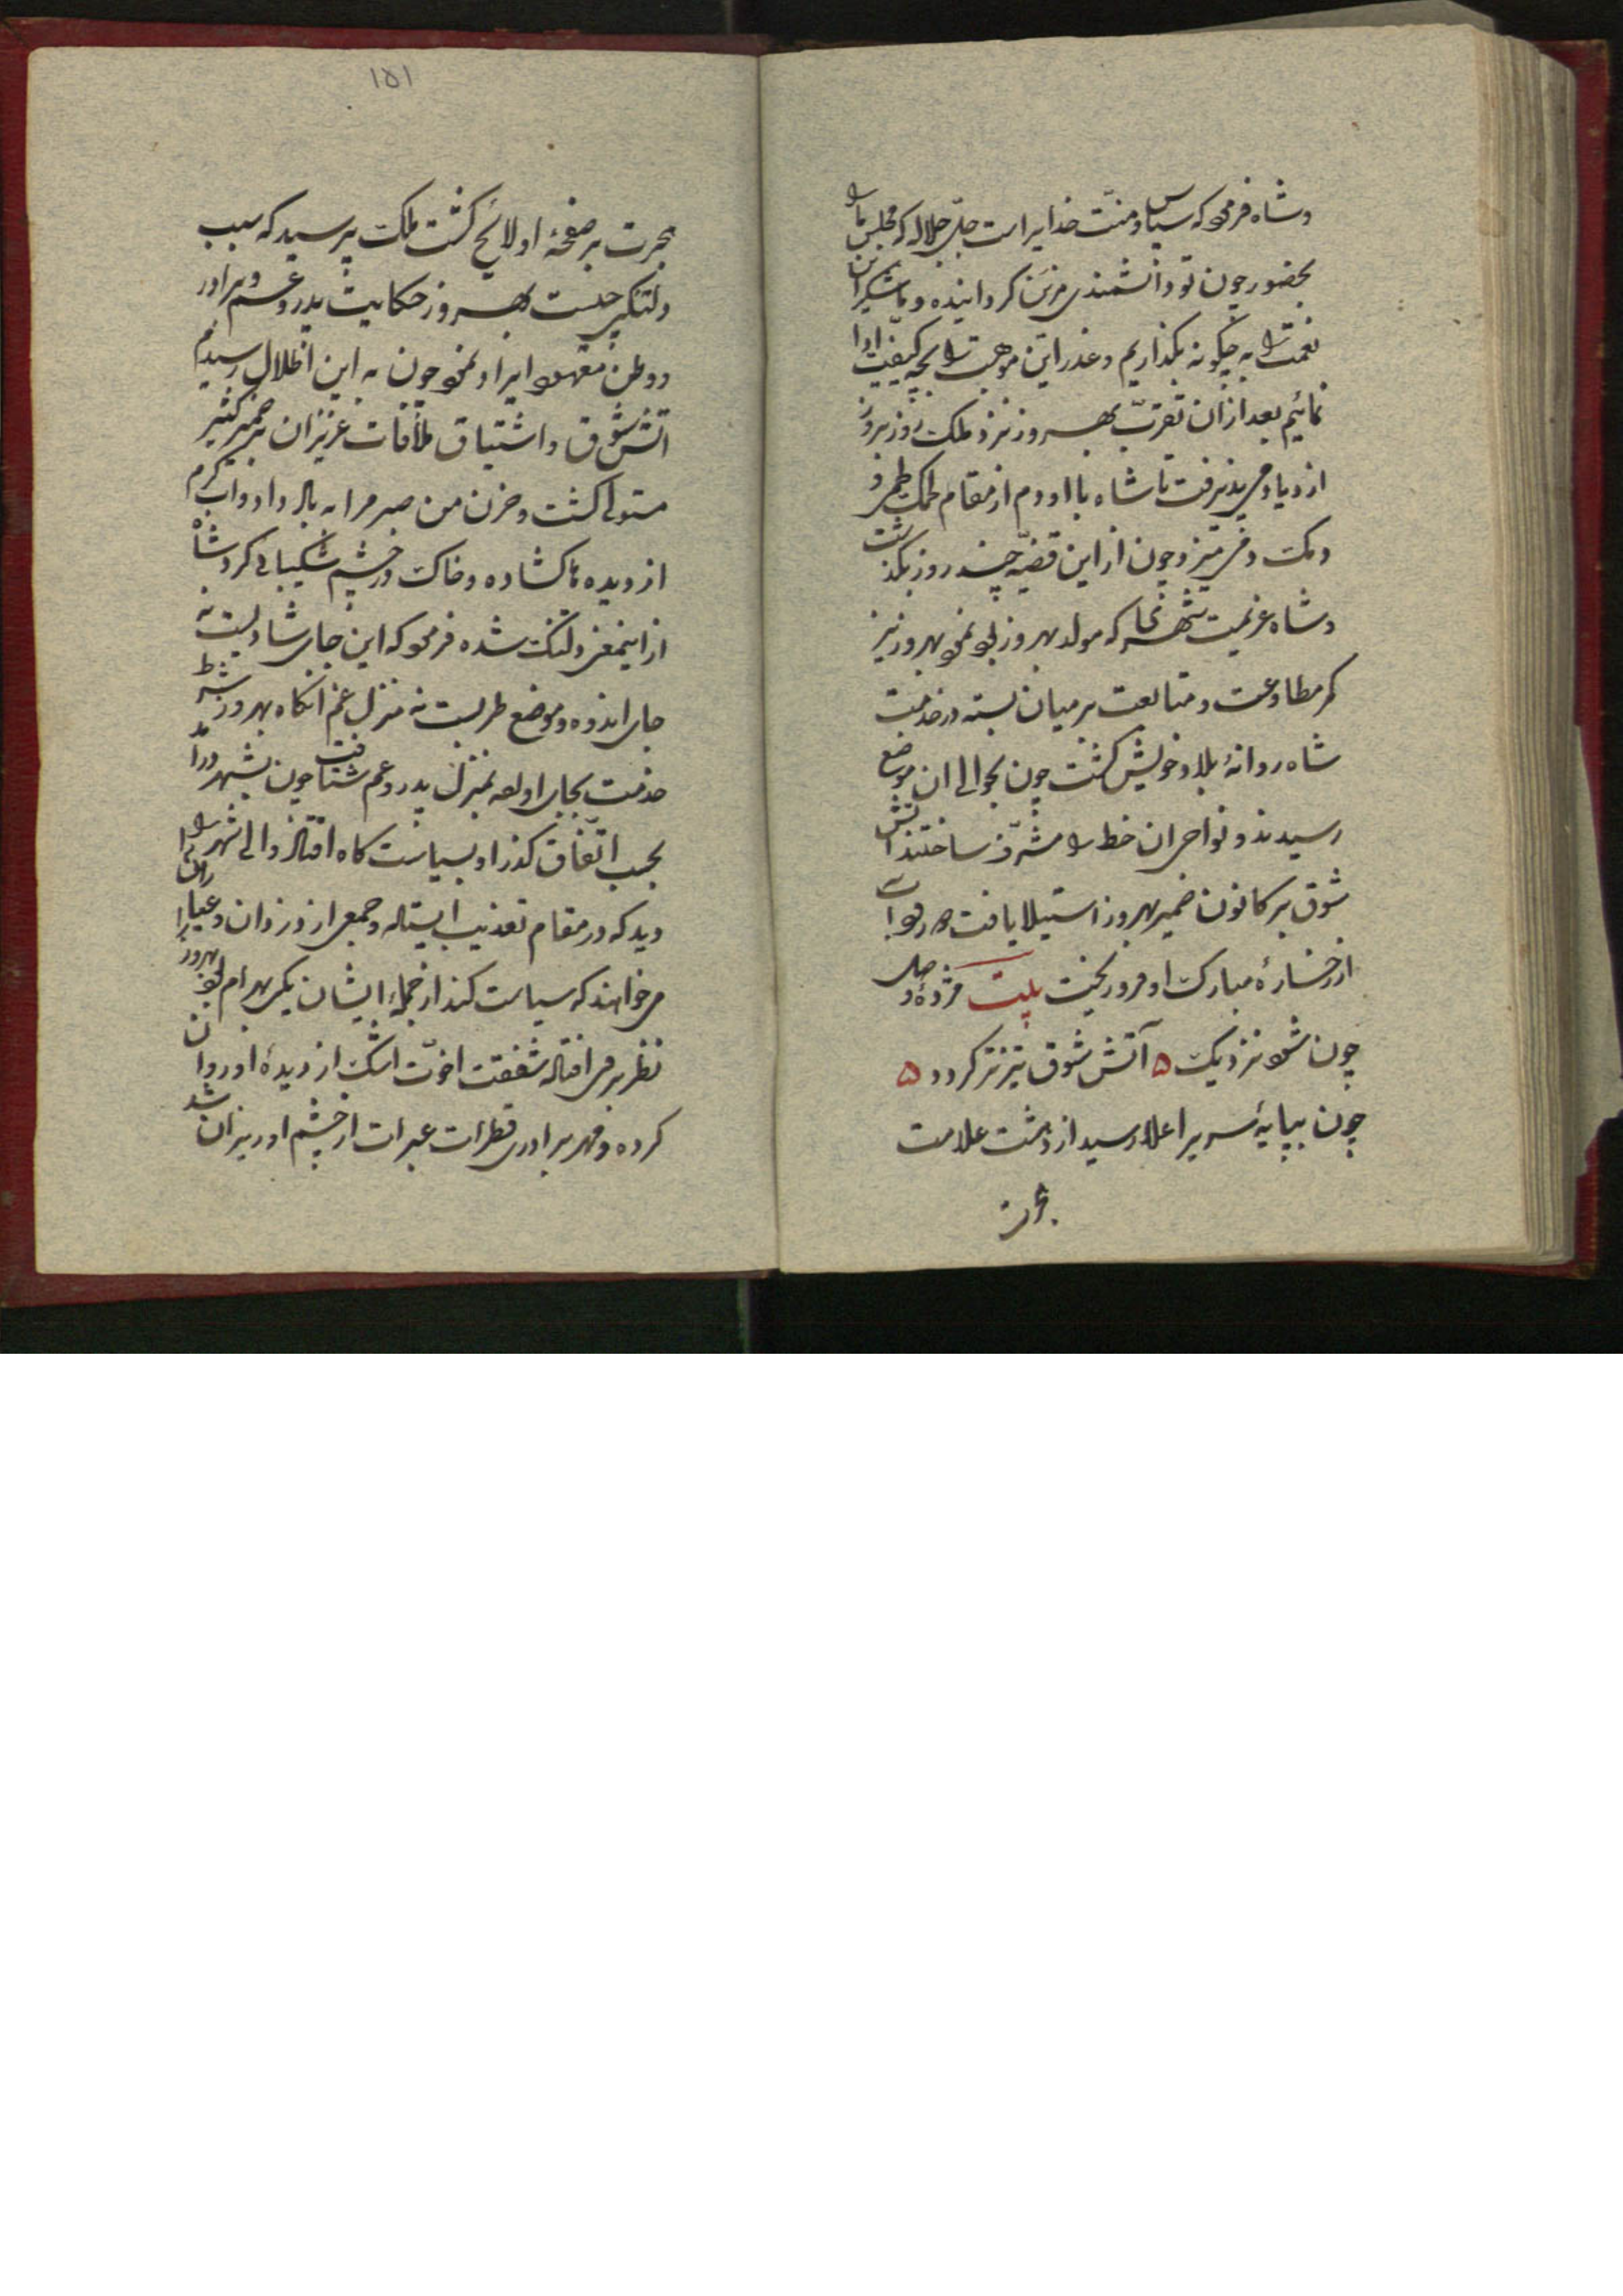 وشاه فرمود که سپاس و منت خدایراست جل جلاله که مجلس ما را
بحضور چون تو دانشمندی مزین کردانیده و ما شکر این
نعمت را به چکونه بکذاریم و عذر این موهبت را بچه کیفیت ادا
نمائیم بعد از ان تقرب بهروز نزد ملک روز بروز
ازدیاد می پذیرفت تا شاه با او دم از مقام
و چون از این قضیه چند روز بکذشت
وشاه عزیمت شهری که مولد بهروز بود نمود بهروز نیز
کمر مطاوعت و متابعت بر میان بسته در خدمت
شاه روانهٔ بلاد خویش کشت چون بحوالی ان موضع
رسیدند و نواحی ان خطه را مشرف ساختند اتش
شوق بر کانون ضمیر بهروز استیلا یافت
از رخسارهٔ مبارک او فرو ریخت بیت مژدهٔ وصل
چون شود نزدیک ۵ آتش شوق تیزتر کردد ۵
چون بپایهٔ سریر اعلا رسید از دهشت علامت
۱۵۱
بر صفحهٔ او لائح کشت ملک پرسید که سبب
دلتنکی چیست بهروز حکایت پدر و عم و برادر
و وطن معهود ایراد نمود چون به این اظلال رسیدم
اتش شوق و اشتیاق ملاقات عزیزان بر ضمیر کثیر
متولی کشت و حزن من صبر مرا به باد داد و اب کرم
از دیده ها کشاده و خاک در چشم شکیبائی کرد شاه
از اینمعنی دلتنک شده فرمود که این جای شادیست نه
جای اندوه و موضع طربست نه منزل غم انکاه بهروز شرط
خدمت بجای اورده بمنزل پدر و عم شتافت چون بشهر درامد
بحسب اتفاق کذر او بسیاست کاه افتاد والی شهر را
دید که در مقام تعذیب ایستاده و جمعی از دزدان و عیاران را
می خواهند که سیاست کند از جملهٔ ایشان یکی بهرام بود بهروز را
نظر بر وی افتاده شفقت اخوت اشک از دیدهٔ او روان
کرده و مهر برادری قطرات عبرات از چشم او ریزان شد